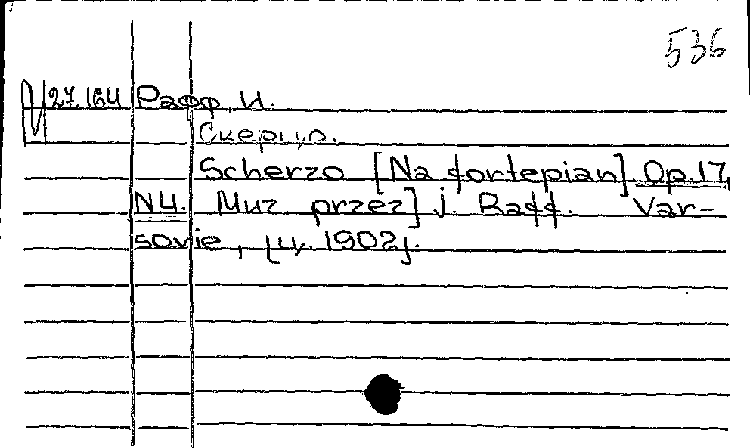 536
27.164 Рафф, И.
Скерцо.
Scherzo [Na fortepian] Op.17,
N4. Muz przez] j. Raff. Var-
sovie, [ц. 1902].